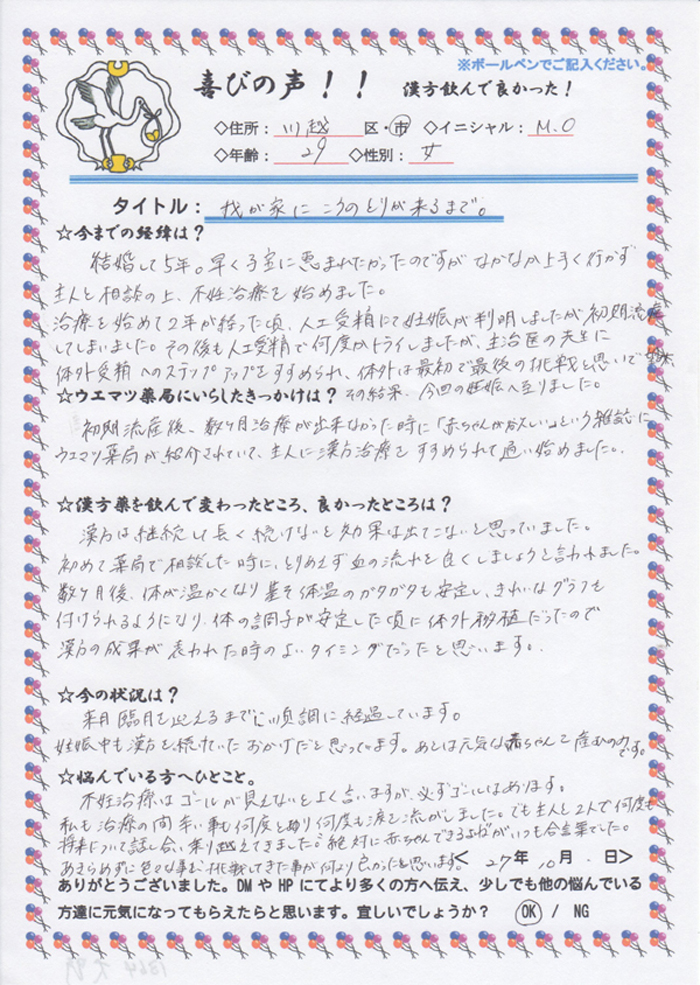 ※ボールペンでご記入ください。
喜びの声！！ 漢方飲んで良かった！
◇住所：川越 区・市 ◇イニシャル：M.O
◇年齢：29 ◇性別：女
タイトル：我が家にこうのとりが来るまで。
☆今までの経緯は？
結婚して5年。早く子宝に恵まれたかったのですがなかなか上手く行かず
主人と相談の上、不妊治療を始めました。
治療を始めて2年が経った頃、人工受精にて妊娠が判明しましたが初期流産
してしまいました。その後も人工受精で何度かトライしましたが、主治医の先生に
体外受精へのステップアップをすすめられ、体外は最初で最後の挑戦と思いで
☆ウエマツ薬局にいらしたきっかけは？ その結果、今回の妊娠へ至りました。
初期流産後、数ヶ月治療が出来なかった時に「赤ちゃんが欲しい」という雑誌に
ウエマツ薬局が紹介されていて、主人に漢方治療をすすめられて通い始めました。
☆漢方薬を飲んで変わったところ、良かったところは？
漢方は継続して長く続けないと効果は出てこないと思っていました。
初めて薬局で相談した時に、とりあえず血の流れを良くしましょうと言われました。
数ヶ月後、体が温かくなり基礎体温のガタガタも安定し、きれいなグラフも
付けられるようになり、体の調子が安定した頃に体外移植だったので
漢方の成果が表われた時のよいタイミングだったと思います。
☆今の状況は？
来月臨月を迎えるまでに順調に経過しています。
妊娠中も漢方を続けていたおかげだと思っています。あとは元気な赤ちゃんを産むのみです。
☆悩んでいる方へひとこと。
不妊治療はゴールが見えないとよく言いますが、必ずゴールはあります。
私も治療の間辛い事も何度もあり何度も涙を流がしました。でも主人と2人で何度も
将来について話し合い、乗り越えてきました。"絶対に赤ちゃんできるよ"がいつも合言葉でした。
あきらめずに色々な事に挑戦してきた事が何より良かったと思います。
＜ 27年 10月 日＞
ありがとうございました。DMやHPにてより多くの方へ伝え、少しでも他の悩んでいる
方達に元気になってもらえたらと思います。宜しいでしょうか？ OK / NG